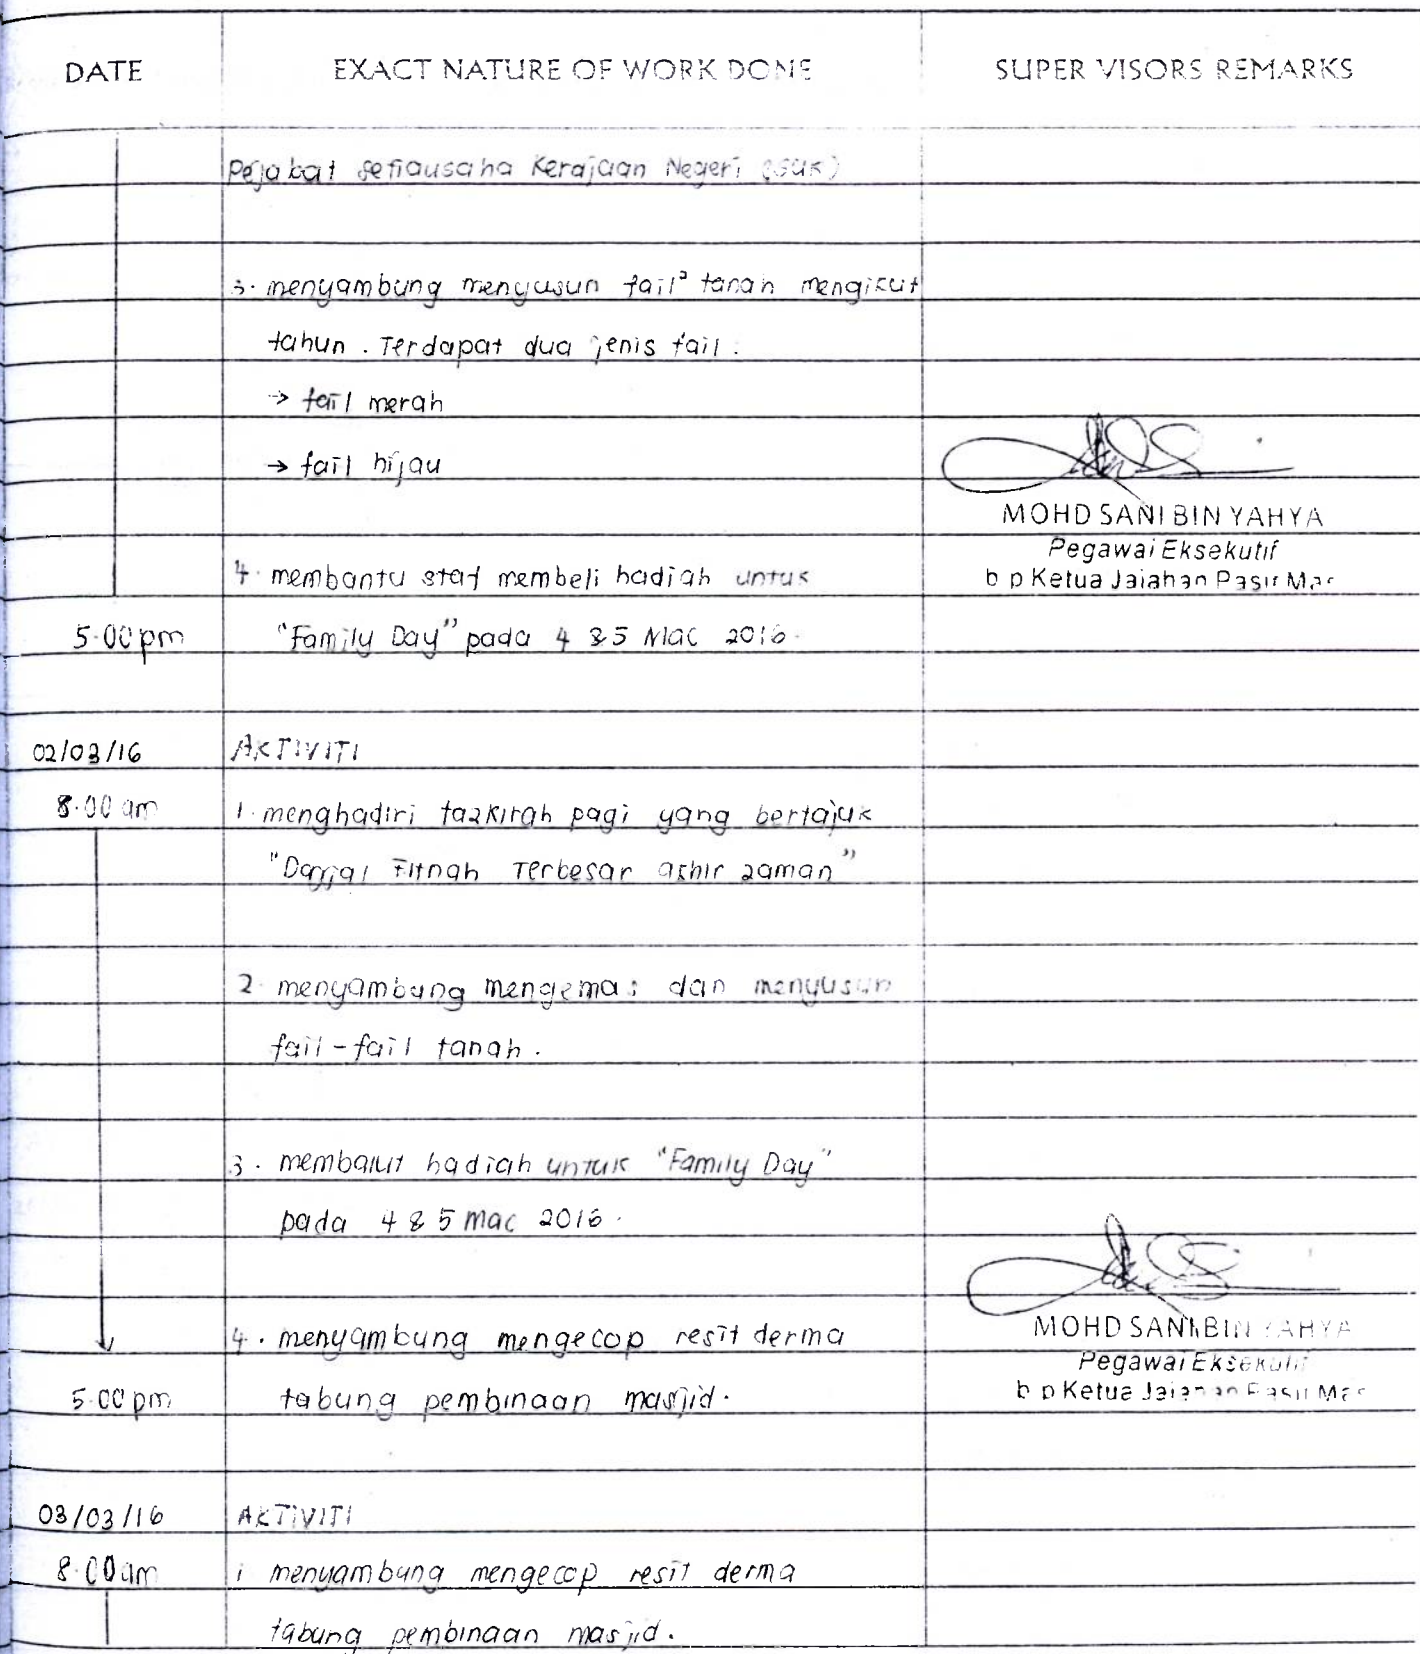 DATE EXACT NATURE OF WORK DONE SUPER VISORS REMARKS
Pejabat setiausaha Kerajaan Negeri (SUK)
3. menyambung menyusun fail² tanah mengikut
tahun. Terdapat dua jenis fail:
→ fail merah
→ fail hijau
MOHD SANI BIN YAHYA
Pegawai Eksekutif
b p Ketua Jajahan Pasir Mas
4. membantu staf membeli hadiah untuk
5.00 pm "Family Day" pada 4 & 5 Mac 2016.
02/03/16 AKTIVITI
8.00 am 1. menghadiri tazkirah pagi yang bertajuk
"Dajjal Fitnah Terbesar akhir zaman"
2. menyambung mengemas dan menyusun
fail-fail tanah.
3. membalut hadiah untuk "Family Day"
pada 4 & 5 mac 2016.
4. menyambung mengecop resit derma
5.00 pm tabung pembinaan masjid.
MOHD SANI BIN YAHYA
Pegawai Eksekutif
b p Ketua Jajahan Pasir Mas
03/03/16 AKTIVITI
8.00am 1 menyambung mengecop resit derma
tabung pembinaan masjid.